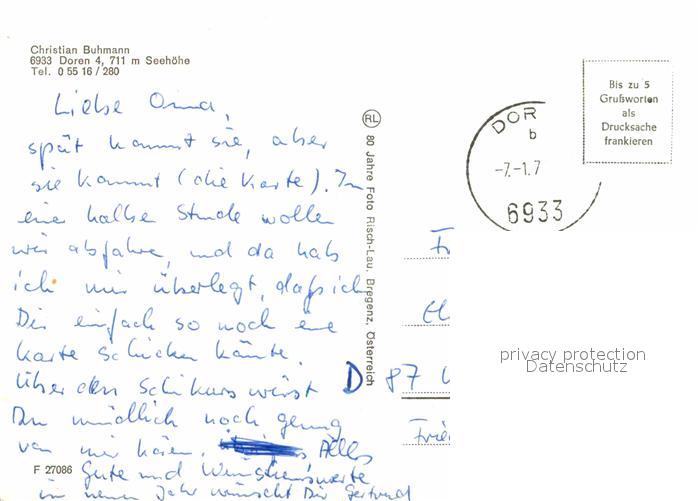 Christian Buhmann
6933 Doren 4, 711 m Seehöhe
Tel. 0 55 16 / 280
Liebe Oma,
spät kommt sie, aber
sie kommt (die Karte). In
eine halbe Stunde wollen
wir abfahren, und da hab
ich mir überlegt, daß ich
Dir einfach so noch eine
Karte schicken könnte.
Über den Schikurs wirst
Du mündlich noch genug
von mir hören. Alles
Gute und Wünschenswerte
im neuen Jahr wünscht Dir Gertrud
F 27086
RL
80 Jahre Foto Risch-Lau, Bregenz, Österreich
Bis zu 5
Grußworten
als
Drucksache
frankieren
DOR
b
-7.-1.7
6933
D 87
privacy protection
Datenschutz